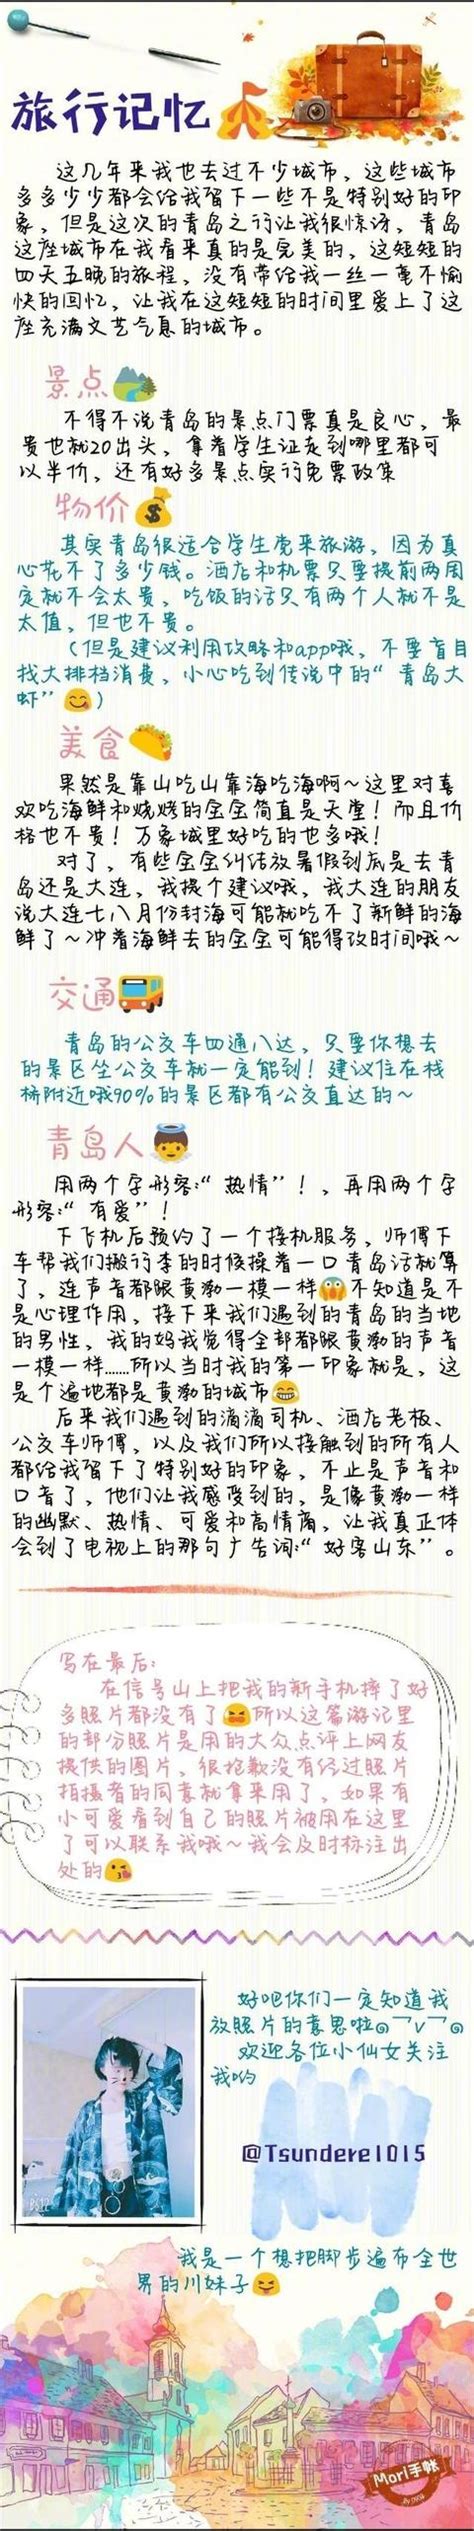 旅行记忆
这几年来我也去过不少城市，这些城市
多多少少都会给我留下一些不是特别好的印
象，但是这次的青岛之行让我很惊讶，青岛
这座城市在我看来真的是完美的，这短短的
四天五晚的旅程，没有带给我一丝一毫不愉
快的回忆，让我在这短短的时间里爱上了这
座充满文艺气息的城市。
景点
不得不说青岛的景点门票真是良心，最
贵也就20出头，拿着学生证走到哪里都可
以半价，还有好多景点实行免票政策
物价
其实青岛很适合学生党来旅游，因为真
心花不了多少钱。酒店和机票只要提前两周
定就不会太贵，吃饭的话只有两个人就不是
太值，但也不贵。
（但是建议利用攻略和app哦，不要盲目
找大排档消费，小心吃到传说中的“青岛大
虾”😋）
美食
果然是靠山吃山靠海吃海啊～这里对喜
欢吃海鲜和烧烤的金金简直是天堂！而且价
格也不贵！万象城里好吃的也多哦！
对了，有些金金纠结放暑假到底是去青
岛还是大连，我提个建议哦，我大连的朋友
说大连七八月份封海可能就吃不了新鲜的海
鲜了～冲着海鲜去的金金可能得改时间哦～
交通
青岛的公交车四通八达，只要你想去
的景区坐公交车就一定能到！建议住在栈
桥附近哦90%的景区都有公交直达的～
青岛人
用两个字形容：“热情”！，再用两个字
形容：“有爱”！
下飞机后预约了一个接机服务，师傅下
车帮我们搬行李的时候操着一口青岛话就算
了，连声音都跟黄渤一模一样😱不知道是不
是心理作用，接下来我们遇到的青岛的当地
的男性，我的妈我觉得全部都跟黄渤的声音
一模一样……所以当时我的第一印象就是，这
是个遍地都是黄渤的城市😂
后来我们遇到的滴滴司机、酒店老板、
公交车师傅，以及我们所以接触到的所有人
都给我留下了特别好的印象，不止是声音和
口音了，他们让我感受到的，是像黄渤一样
的幽默、热情、可爱和高情商，让我真正体
会到了电视上的那句广告词：“好客山东”。
写在最后：
在信号山上把我的新手机摔了好
多照片都没有了😝所以这篇游记里
的部分照片是用的大众点评上网友
提供的图片，很抱歉没有经过照片
拍摄者的同意就拿来用了，如果有
小可爱看到自己的照片被用在这里
了可以联系我哦～我会及时标注出
处的😘
好吧你们一定知道我
放照片的意思啦๑乛v乛๑
欢迎各位小仙女关注
我哟
@Tsundere1015
我是一个想把脚步遍布全世
界的川妹子😝
Mori手帐